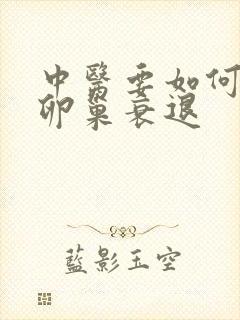 中醫要如何
卵巢衰退
藍影玉空